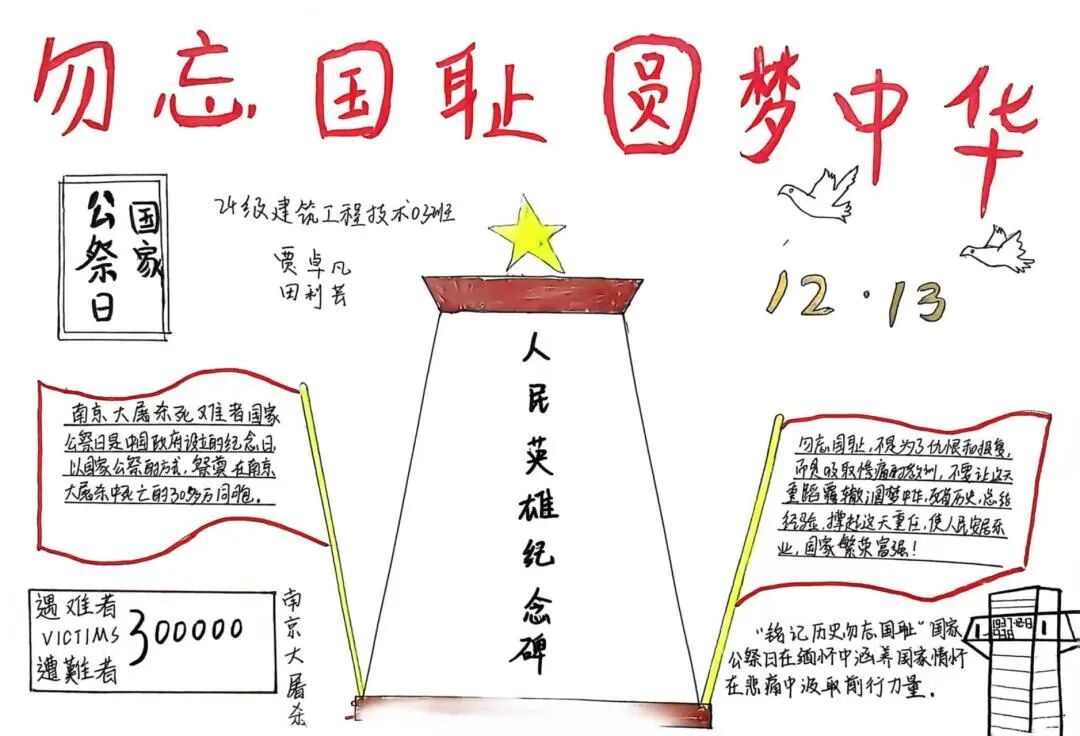 勿忘国耻圆梦中华
国家
公祭日
24级建筑工程技术03班
贾卓凡
田利芸
12·13
人民英雄纪念碑
南京大屠杀死难者国家
公祭日是中国政府设立的纪念日,
以国家公祭的方式,祭奠在南京
大屠杀中死亡的30多万同胞。
勿忘国耻,不是为了仇恨和报复,
而是吸取惨痛的教训,不要让这天
重蹈覆辙;圆梦中华,反省历史,总结
经验,撑起这天重任,使人民安居乐
业,国家繁荣富强!
遇难者
VICTIMS 300000
遭難者
南京大屠杀
"铭记历史勿忘国耻"国家
公祭日在缅怀中涵养国家情怀
在悲痛中汲取前行力量。